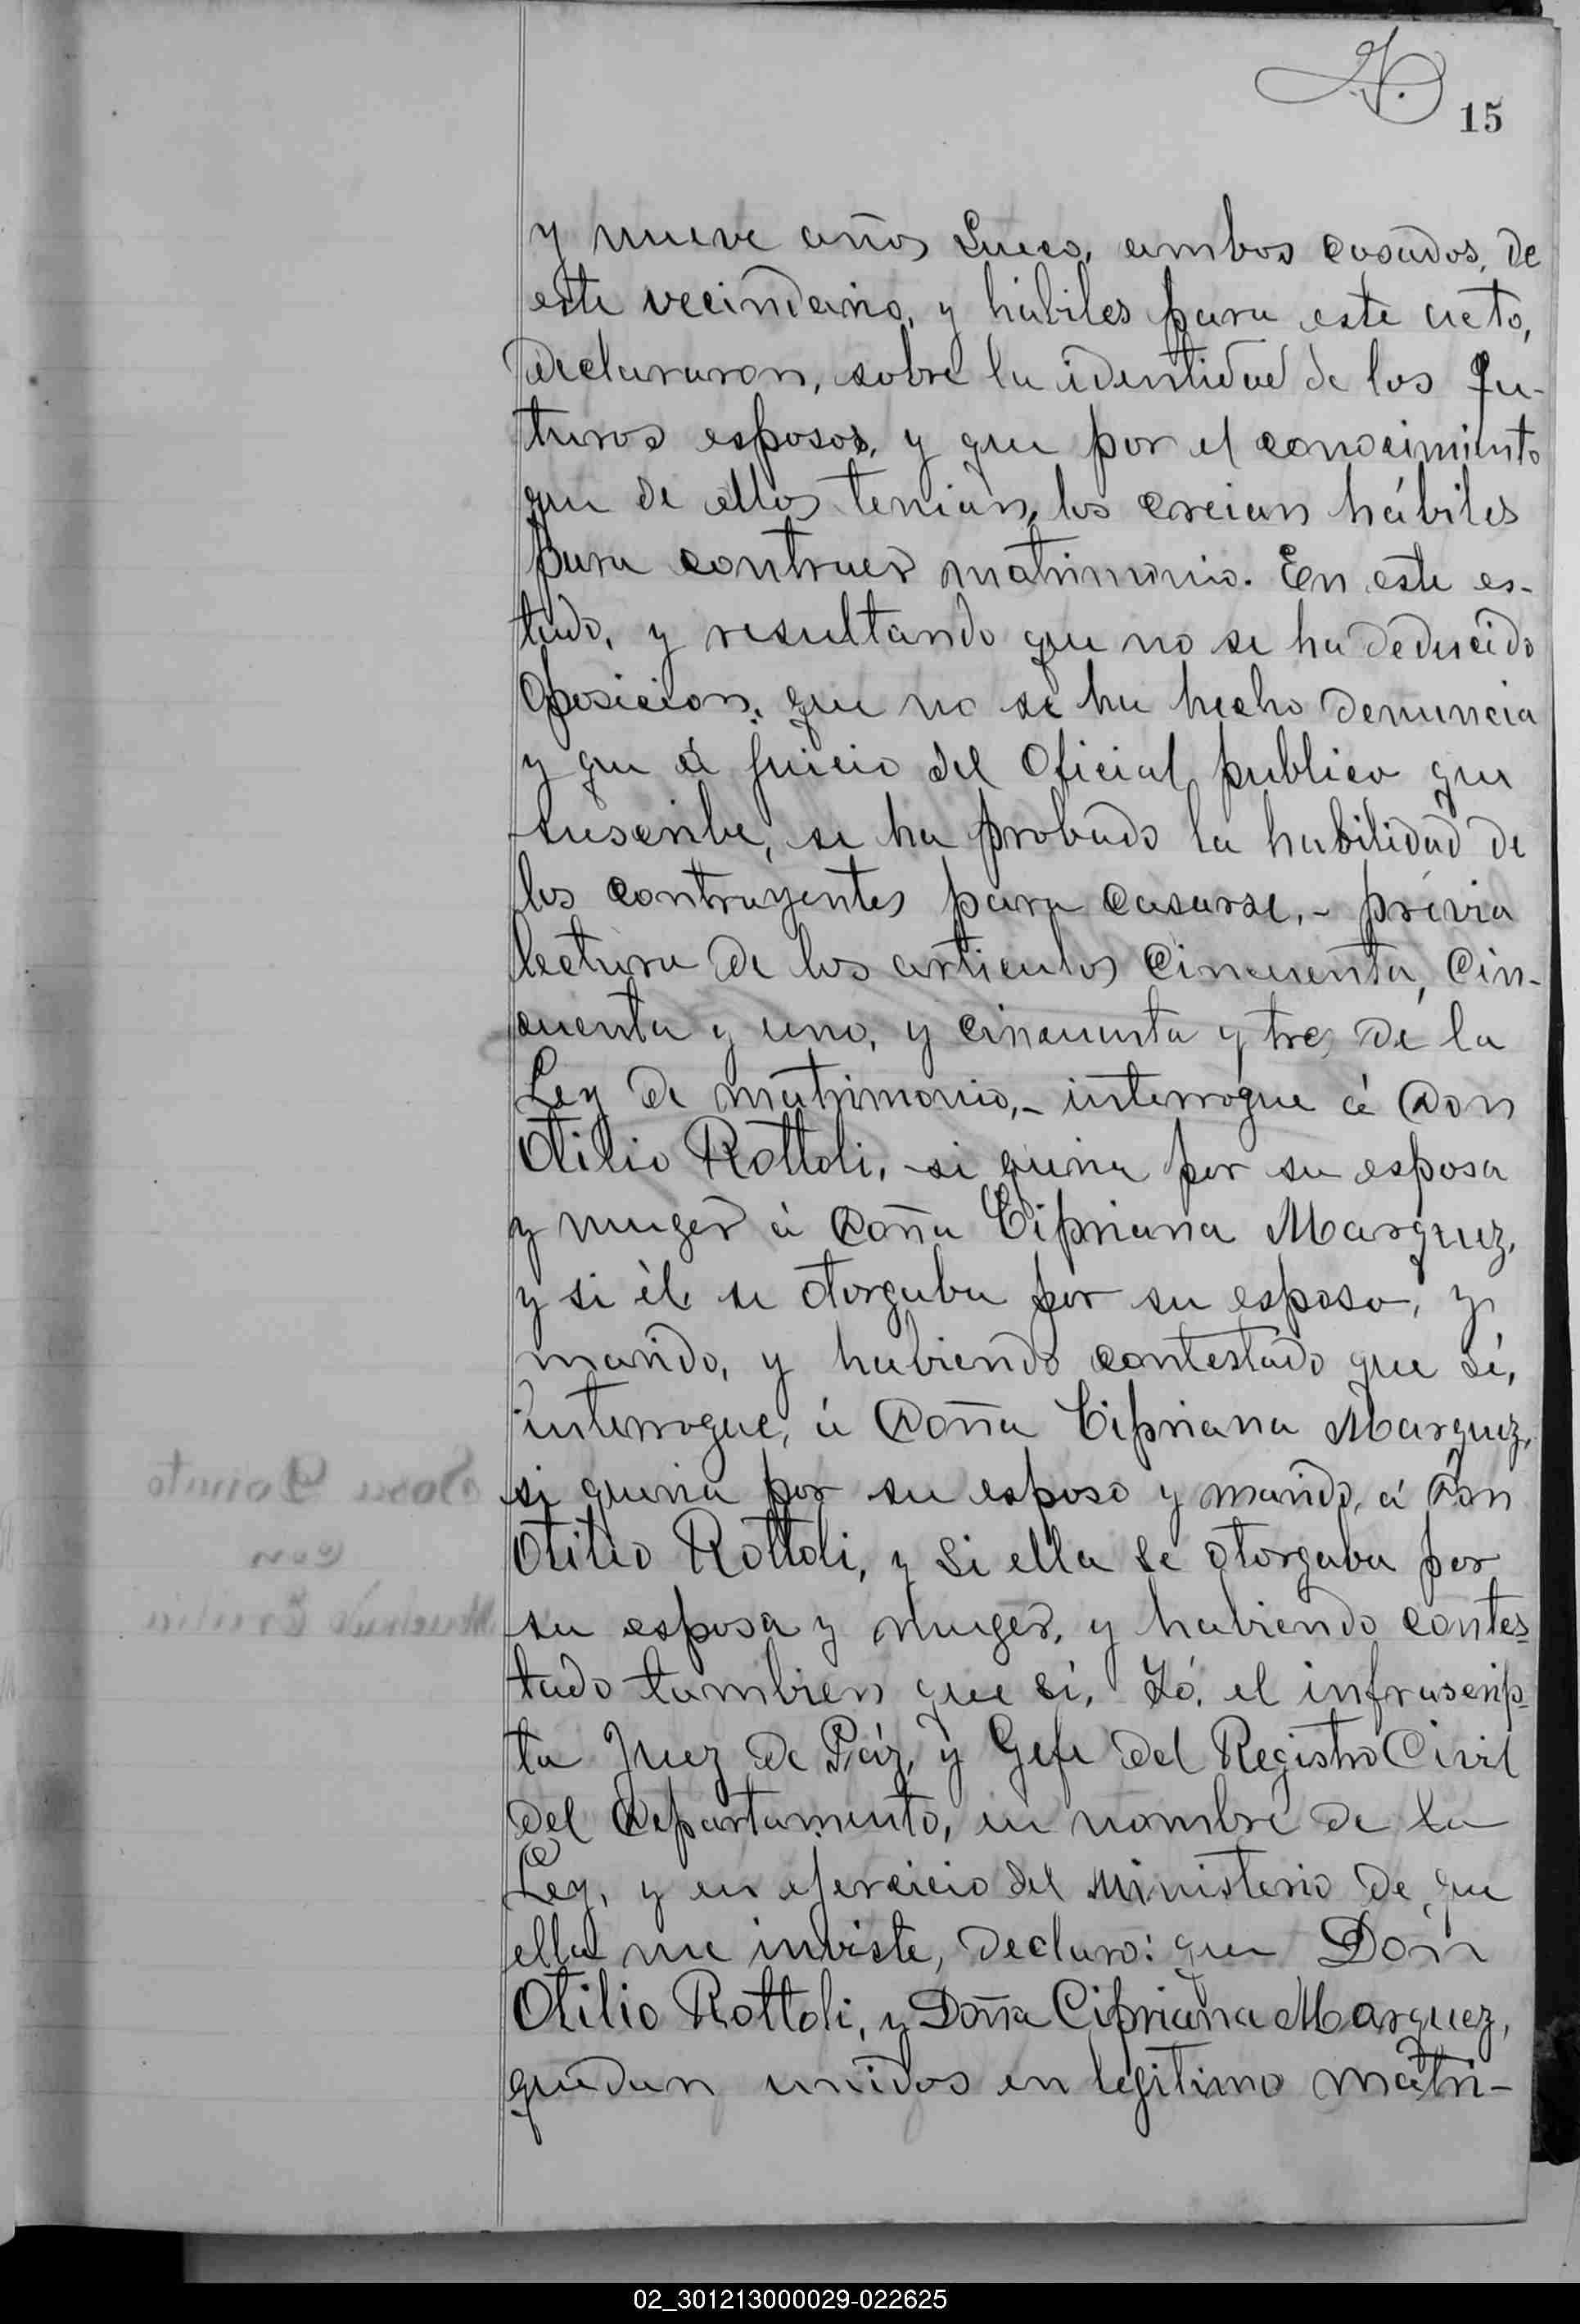 15
y nueve años Sueco, ambos casados, de
este vecindario, y hábiles para este acto,
declararon, sobre la identidad de los fu-
turos esposos, y que por el conocimiento
que de ellos tenian, los creian hábiles
para contraer matrimonio. En este es-
tado, y resultando que no se ha deducido
oposicion, que no se ha hecho denuncia
y que á juicio del Oficial publico que
suscribe, se ha probado la habilidad de
los contrayentes para casarse,- prévia
lectura de los articulos Cincuenta, Cin-
cuenta y uno, y Cincuenta y tres de la
Ley de matrimonio,- interrogue á Don
Otilio Rottoli, si queria por su esposa
y muger á Doña Cipriana Marquez,
y si él se otorgaba por su esposo, y
marido, y habiendo contestado que sí,
interrogue, á Doña Cipriana Marquez,
si queria por su esposo y marido, á Don
Otilio Rottoli, y si ella se otorgaba por
su esposa y muger, y habiendo contes-
tado tambien que sí, Yó, el infrascrip-
to Juez de Páz, y Gefe del Registro Civil
del Departamento, en nombre de la
Ley, y en ejercicio del Ministerio de que
ella me inviste, declaro: que Don
Otilio Rottoli, y Doña Cipriana Marquez,
quedan unidos en legitimo matri-
02_301213000029-022625